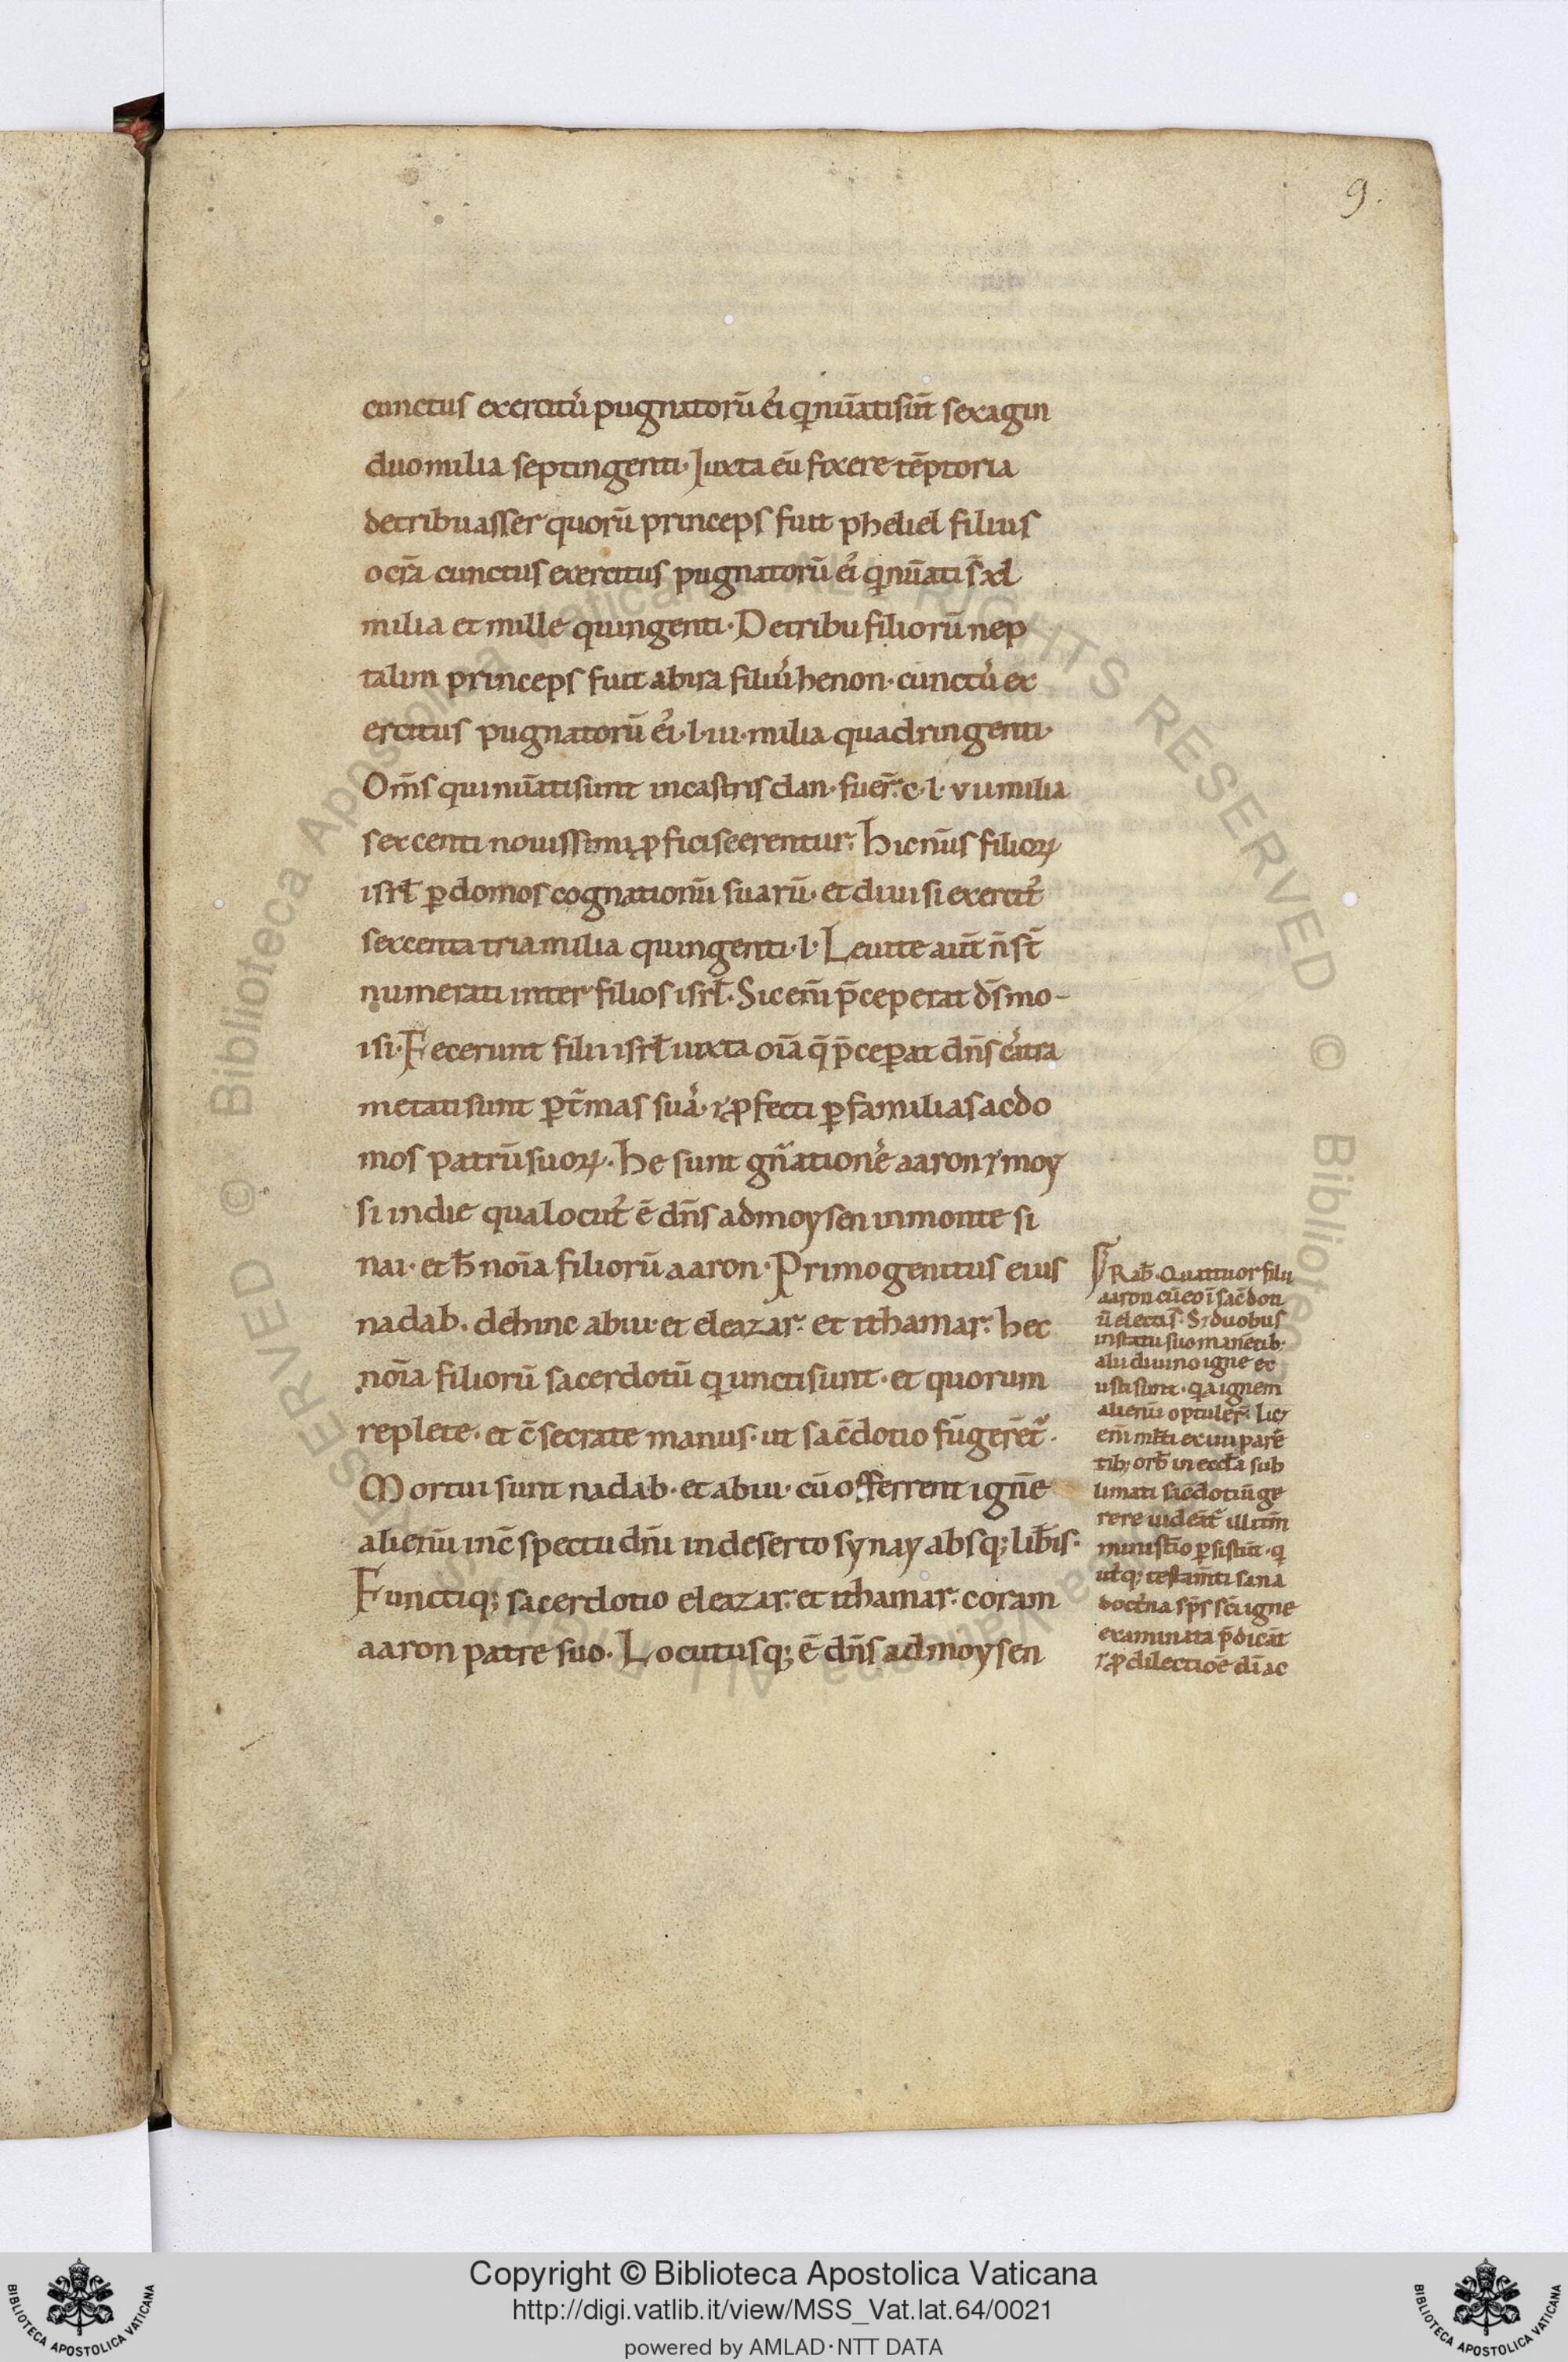 9.
cunctus exercitu᷒ pugnatorū ei᷒ qͥ nūati sūt sexagin
duo milia septingenti· Iuxta eū fixere tēptoria
de tribu asser quorū princeps fuit pheliel filius
ocrā cunctus exercitus pugnatorū ei᷒ qͥ nūati s̄ xl
milia et mille quingenti· De tribu filiorū nep
talim princeps fuit ahira filiu᷒ henon· cunctu᷒ ex
ercitus pugnatorū ei᷒· l·iii· milia quadringenti·
Om̄s qui nūati sunt in castris dan· fuer̄· c·l·vii milia
sexcenti nouissimi ꝓficiscerentur· hic nūs filioꝝ
isrł ꝑ domos cognationū suarū· et diuisi exercit᷒
sexcenta tria milia quingenti·l· Leuite aūt n̄ st̄
numerati inter filios isrł· Sic enī p̄ceperat dn̄s mo-
isi· Fecerunt filii isrł iuxta oīa q̄ p̄ceꝑat dn̄s cͣtra
metati sunt ꝑ t̄mas sua᷒· ⁊ ꝓfecti ꝑ familias ac do
mos patrū suoꝝ· he sunt gn̄atione᷒ aaron ⁊ moy
si in die qua locut᷒ ē dn̄s ad moysen in monte si
nai· et ħ noīa filiorū aaron· Primogenitus eius
nadab· dehinc abiu· et eleazar· et ithamar· hec
noīa filiorū sacerdotū qͥ uncti sunt· et quorum
replete· et c̄secrate manus· ut sac̄dotio fūgerēt᷑·
Mortui sunt nadab· et abiu· cū offerrent ignē
alienū in c̄spectu dn̄i in deserto synay absq; lib̄is·
Functiq; sacerdotio eleazar· et ithamar· coram
aaron patre suo· Locutusq; ē dn̄s ad moysen
Rab̄· Quattuor filii
aaron cū eo ī sac̄doti
ū electi s̄· S; duobus
in statu suo manētib;
alii diuino igne ex
usti sunt· qͥa ignem
alienū optuler̄· lic;
enī m̄ti ex iiii parē
tib; orb̄ in eccła sub
limati sac̄dotiū ge
rere uideāt᷑ illi tn̄
minist̄io ꝑsistūt· qͥ
ut̄q; testam̄ti sana
doct̄na sp̄s sc̄i igne
examinata p̄dicāt
⁊ ꝓ dilectiōe dī ac
Copyright © Biblioteca Apostolica Vaticana
http://digi.vatlib.it/view/MSS_Vat.lat.64/0021
powered by AMLAD·NTT DATA
BIBLIOTECA APOSTOLICA VATICANA
BIBLIOTECA APOSTOLICA VATICANA